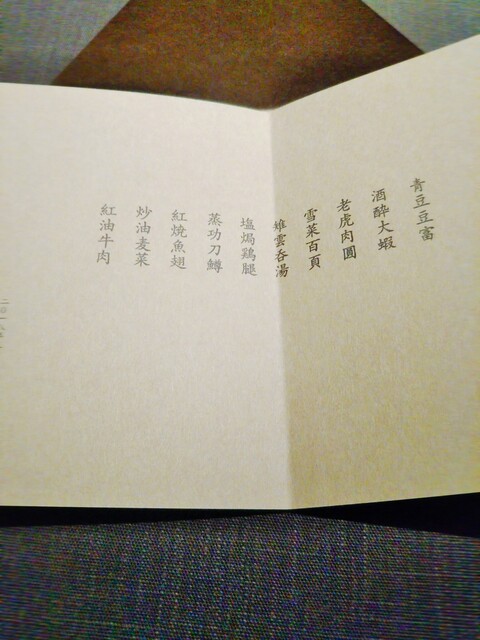 青豆豆富
酒酔大蝦
老虎肉圓
雪菜百頁
雉雲呑湯
塩焗鶏腿
蒸功刀鱒
紅焼魚翅
炒油麦菜
紅油牛肉